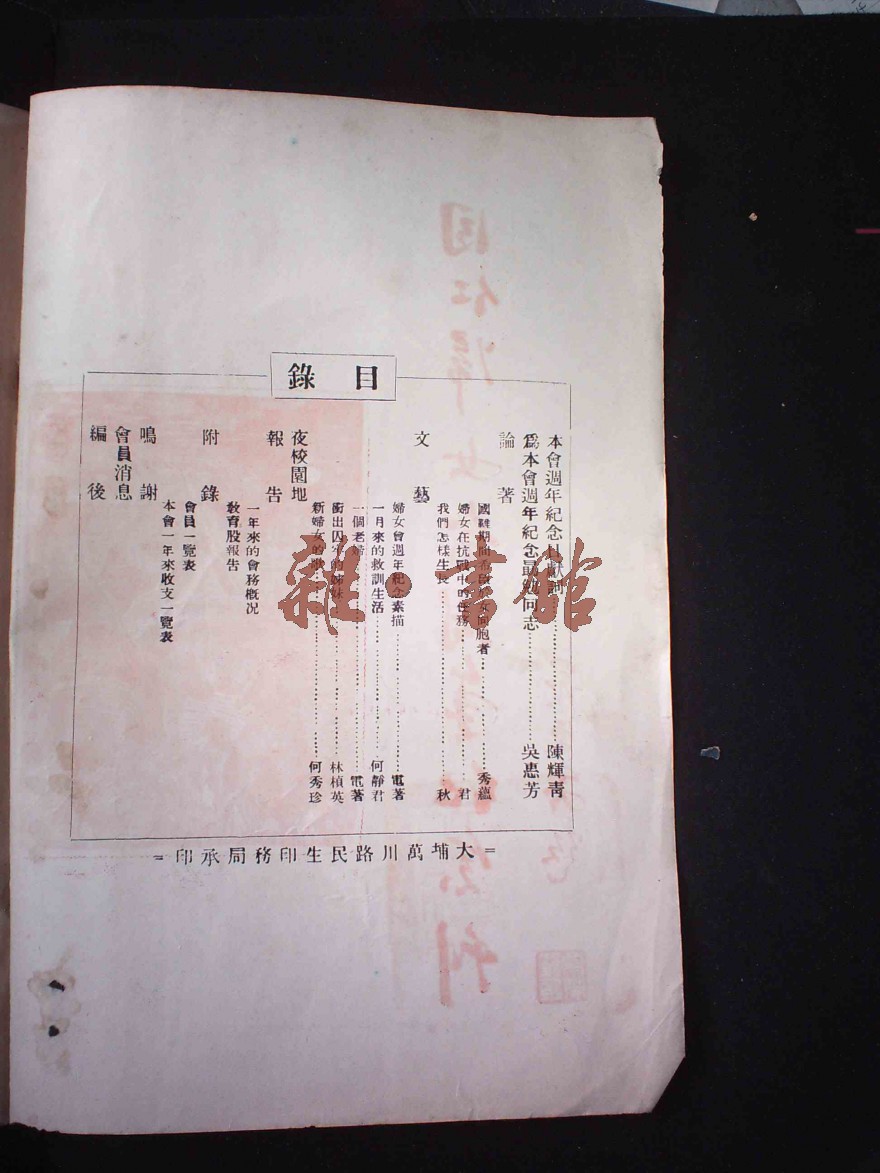 目錄
本會週年紀念刊獻詞 陳輝靑
爲本會週年紀念最勉同志 吳惠芳
論著
國難期間 女同胞者 秀蘊
婦女在抗戰中的任務 君
我們怎樣生長 秋
文藝
婦女會週年紀念素描 電著
一月來的救訓生活 何靜君
一個老婦 電著
衝出囚牢的姊妹 林楨英
新婦女的歌 何秀珍
夜校園地
報告
一年來的會務槪况
敎育股報告
附錄
會員一覽表
本會一年來收支一覽表
鳴謝
會員消息
編後
=大埔萬川路民生印務局承印=
雜·書館